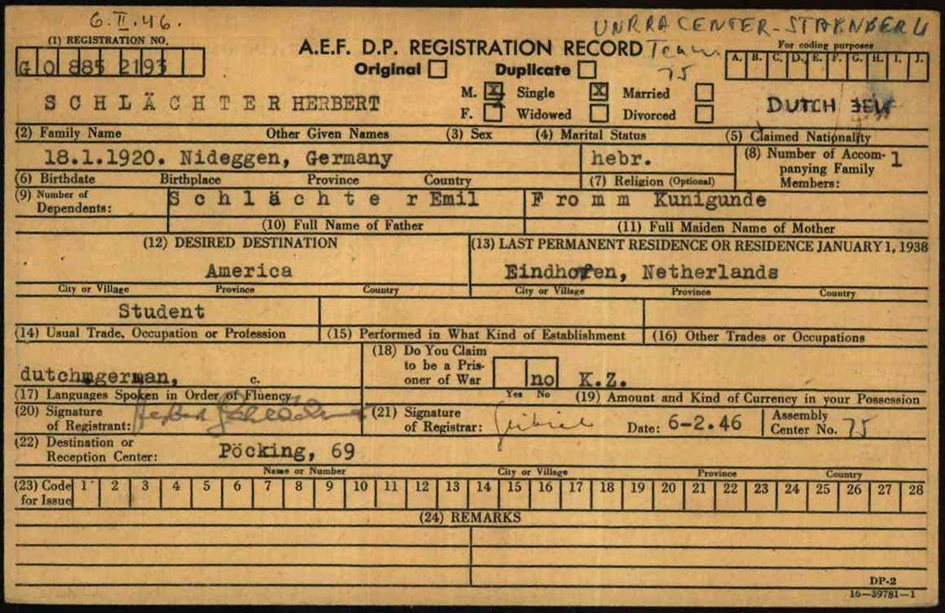 6.II.46.
UNRRA CENTER - STARNBERG
Team
75
(1) REGISTRATION NO.
G 0 885 2193
A.E.F. D.P. REGISTRATION RECORD
Original ☐ Duplicate ☐
For coding purposes
A. B. C. D. E. F. G. H. I. J.
S C H L Ä C H T E R HERBERT
M. ☒ Single ☒ Married ☐
F. ☐ Widowed ☐ Divorced ☐
DUTCH JEW
(2) Family Name Other Given Names (3) Sex (4) Marital Status (5) Claimed Nationality
18.1.1920. Nideggen, Germany
hebr.
(8) Number of Accom-
panying Family
Members:
1
(6) Birthdate Birthplace Province Country (7) Religion (Optional)
(9) Number of
Dependents:
S c h l ä c h t e r Emil
F r o m m Kunigunde
(10) Full Name of Father (11) Full Maiden Name of Mother
(12) DESIRED DESTINATION
(13) LAST PERMANENT RESIDENCE OR RESIDENCE JANUARY 1, 1938
America
Eindhofen, Netherlands
City or Village Province Country City or Village Province Country
Student
(14) Usual Trade, Occupation or Profession (15) Performed in What Kind of Establishment (16) Other Trades or Occupations
dutch, german, c.
(18) Do You Claim
to be a Pris-
oner of War
no
K.Z.
(17) Languages Spoken in Order of Fluency Yes No (19) Amount and Kind of Currency in your Possession
(20) Signature
of Registrant:
(21) Signature
of Registrar:
Date: 6-2.46
Assembly
Center No. 75
(22) Destination or
Reception Center:
Pöcking, 69
Name or Number City or Village Province Country
(23) Code
for Issue
1 2 3 4 5 6 7 8 9 10 11 12 13 14 15 16 17 18 19 20 21 22 23 24 25 26 27 28
(24) REMARKS
DP-2
16—39781—1